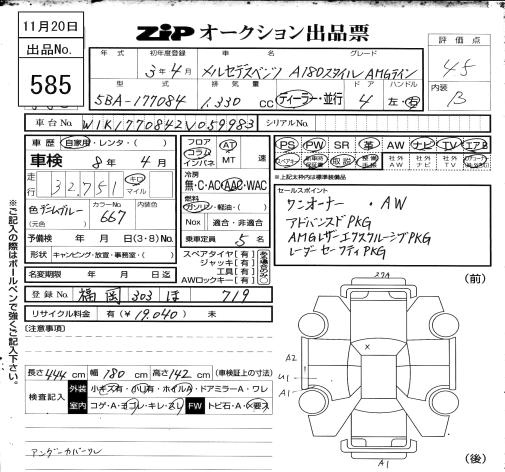 11月20日
ZiP オークション出品票
出品No.
585
年式 初年度登録 車名 グレード
3年4月 メルセデスベンツ A180スタイル AMGライン
型式 排気量 ドア ハンドル
5BA-177084 1.330 CC ディーラー・並行 4 左・右
評価点
4.5
内装
B
車台No. W1K1770842V059983 シリアルNo.
車歴 自家用・レンタ・( )
車検 8年4月
走行 32,751 キロ マイル
色 デニムブルー (元色) カラーNo. 667 内装色
予備検 年 月 日(3・8)No.
形状 キャンピング・放置・事務室・( )
名変期限 年 月 日迄
フロア コラム インパネ AT MT 速
冷房 無・C・AC・AAC・WAC
燃料 ガソリン・軽油・( )
Nox 適合・非適合
乗車定員 5名
スペアタイヤ[有]
ジャッキ[有]
工具[有]
AWロックキー[有]
PS PW SR 革 AW ナビ TV エアB
取説 社外AW 社外ナビ 社外TV
▲上記太枠内は標準装備品
セールスポイント
ワンオーナー ・AW
アドバンスドPKG
AMGレザーエクスクルーシブPKG
レーダーセーフティPKG
登録No. 福岡 303 ほ 719
リサイクル料金 有(¥19,040) 未
(注意事項)
長さ 444 cm 幅 180 cm 高さ 142 cm (車検証上の寸法)
検査記入 外装 小キズ有・小凹有・ホイルA・ドアミラーA・ワレ
室内 コゲ・A・ヨゴレ・キレ・スレ FW トビ石・A・×要ス
アンダーカバーワレ
※ご記入の際はボールペンで強くご記入下さい。
(前)
27A
X
A2
U1
A1
A1
(後)